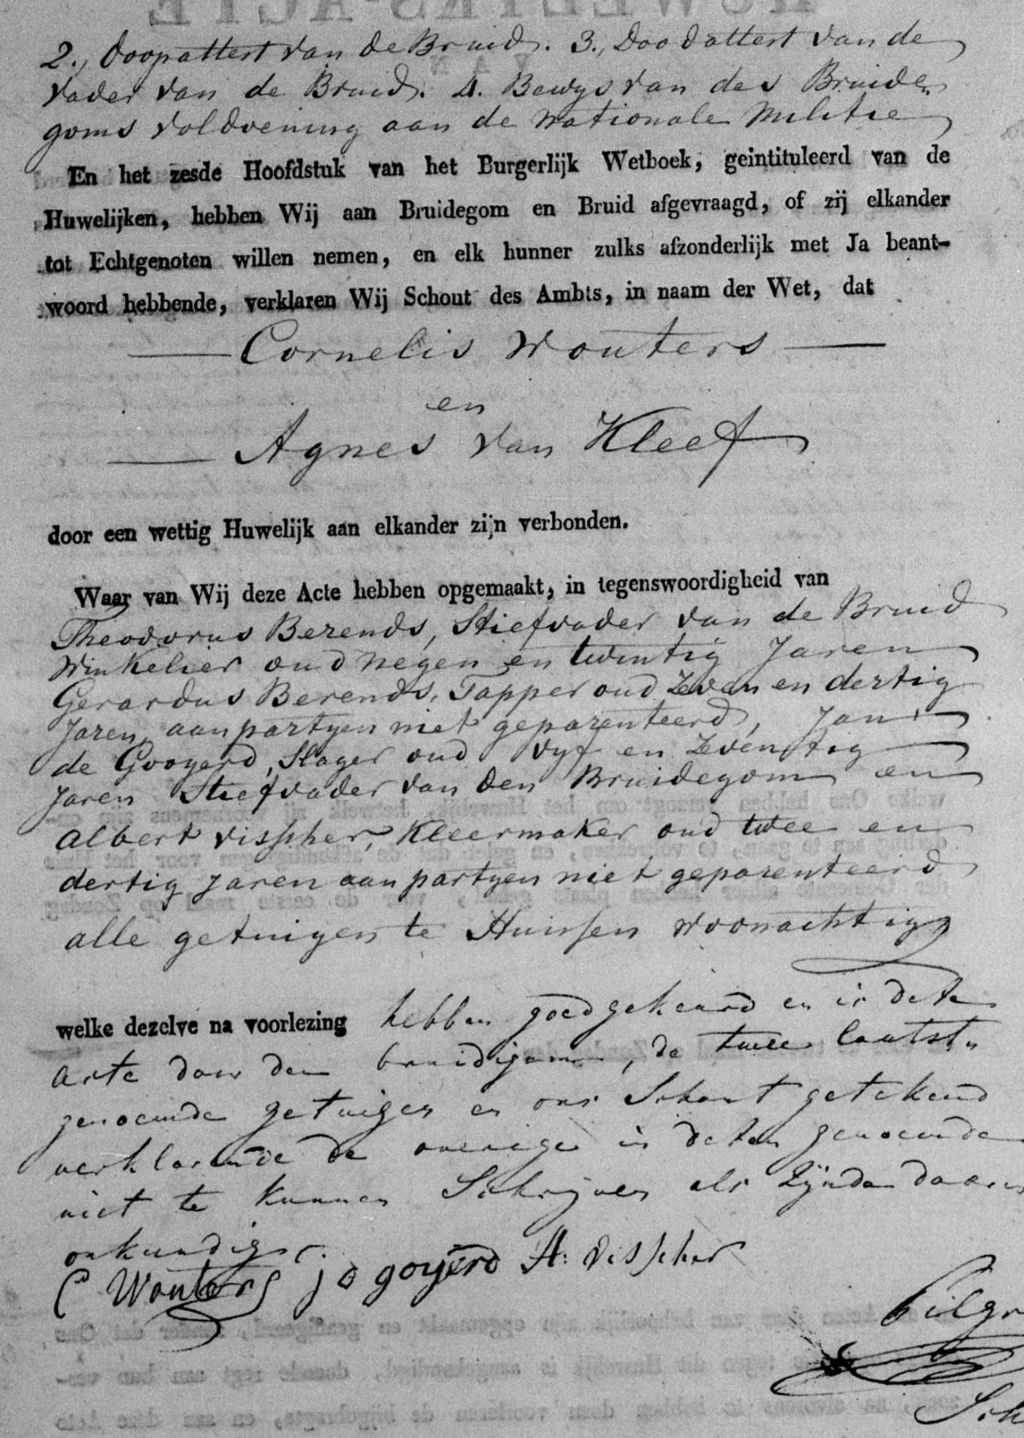 2., Doopattest van de Bruid. 3., Doodattest van de
Vader van de Bruid. 4. Bewys van des Bruide„
goms voldoening aan de Nationale Militie
En het zesde Hoofdstuk van het Burgerlijk Wetboek, geintituleerd van de
Huwelijken, hebben Wij aan Bruidegom en Bruid afgevraagd, of zij elkander
tot Echtgenoten willen nemen, en elk hunner zulks afzonderlijk met Ja beant-
woord hebbende, verklaren Wij Schout des Ambts, in naam der Wet, dat
Cornelis Wouters
en
Agnes van Kleef
door een wettig Huwelijk aan elkander zijn verbonden.
Waar van Wij deze Acte hebben opgemaakt, in tegenswoordigheid van
Theodorus Berends, Stiefvader van de Bruid
Winkelier oud negen en twintig Jaren
Gerardus Berends, Tapper oud zeven en dertig
Jaren, aan partyen niet geparenteerd, Jan
de Gooyerd, Slager oud vyf en zeventig
Jaren Stiefvader van den Bruidegom en
Albert Visscher, Kleermaker oud twee en
dertig Jaren aan partyen niet geparenteerd
alle getuigen te Huissen woonachtig
welke dezelve na voorlezing hebben goedgekeurd en is deze
Acte door den bruidigom, de twee laatst„
genoemde getuigen en ons Schout getekend
verklarende de overige in dezen genoemde
niet te kunnen Schrijven als zijnde daarin
onkundig.
C Wouters J d goyerd A: Visscher
Pilgr
Sch